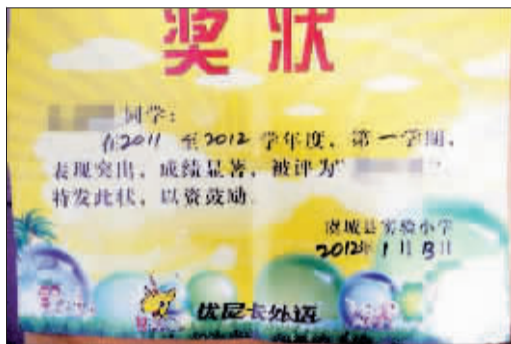 奖状
同学:
在2011 至2012 学年度,第一学期,
表现突出,成绩显著,被评为" ",
特发此状,以资鼓励.
虞城县实验小学
2012年1月13日
优尼卡外语